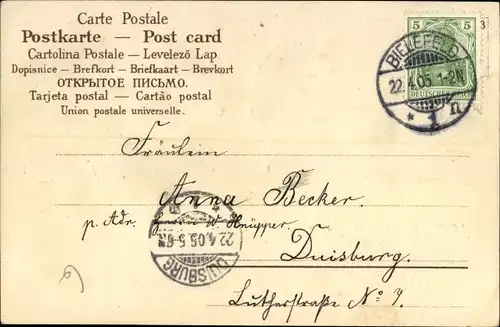 Carte Postale
Postkarte — Post card
Cartolina Postale — Levelező Lap
Dopisnice — Brefkort — Briefkaart — Brevkort
ОТКРЫТОЕ ПИСЬМО.
Tarjeta postal — Cartão postal
Union postale universelle.
5 5
3
DEUTSCHES REICH
BIELEFELD
22.4.05.1-2N
* 1 n
Fräulein
Anna Becker.
p. Adr. W. Knüpper.
Duisburg.
Lutherstraße No 7.
22.4.05.5-6N
DUISBURG